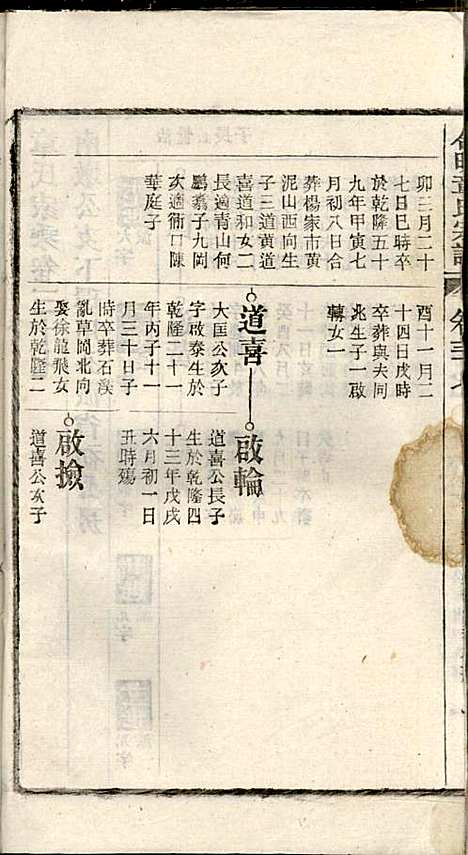 卯三月二十
七日巳時卒
於乾隆五十
九年甲寅七
月初八日合
葬楊家市黄
泥山西南
子三道黄道
喜道和女二
長適青山何
鵬翥子九岡
亥適衕口陳
華庭子
酉十一月二
十四日戌時
卒葬與夫同
兆生子一啟
轉女一
道喜
大匡公次子
字啟泰生於
乾隆二十一
年丙子十一
月三十日子
時卒葬石溪
亂草岡北向
娶徐龍飛女
生於乾隆二
啟輪
道喜公長子
生於乾隆四
十三年戊戌
六月初一日
丑時殤
啟撿
道喜公次子